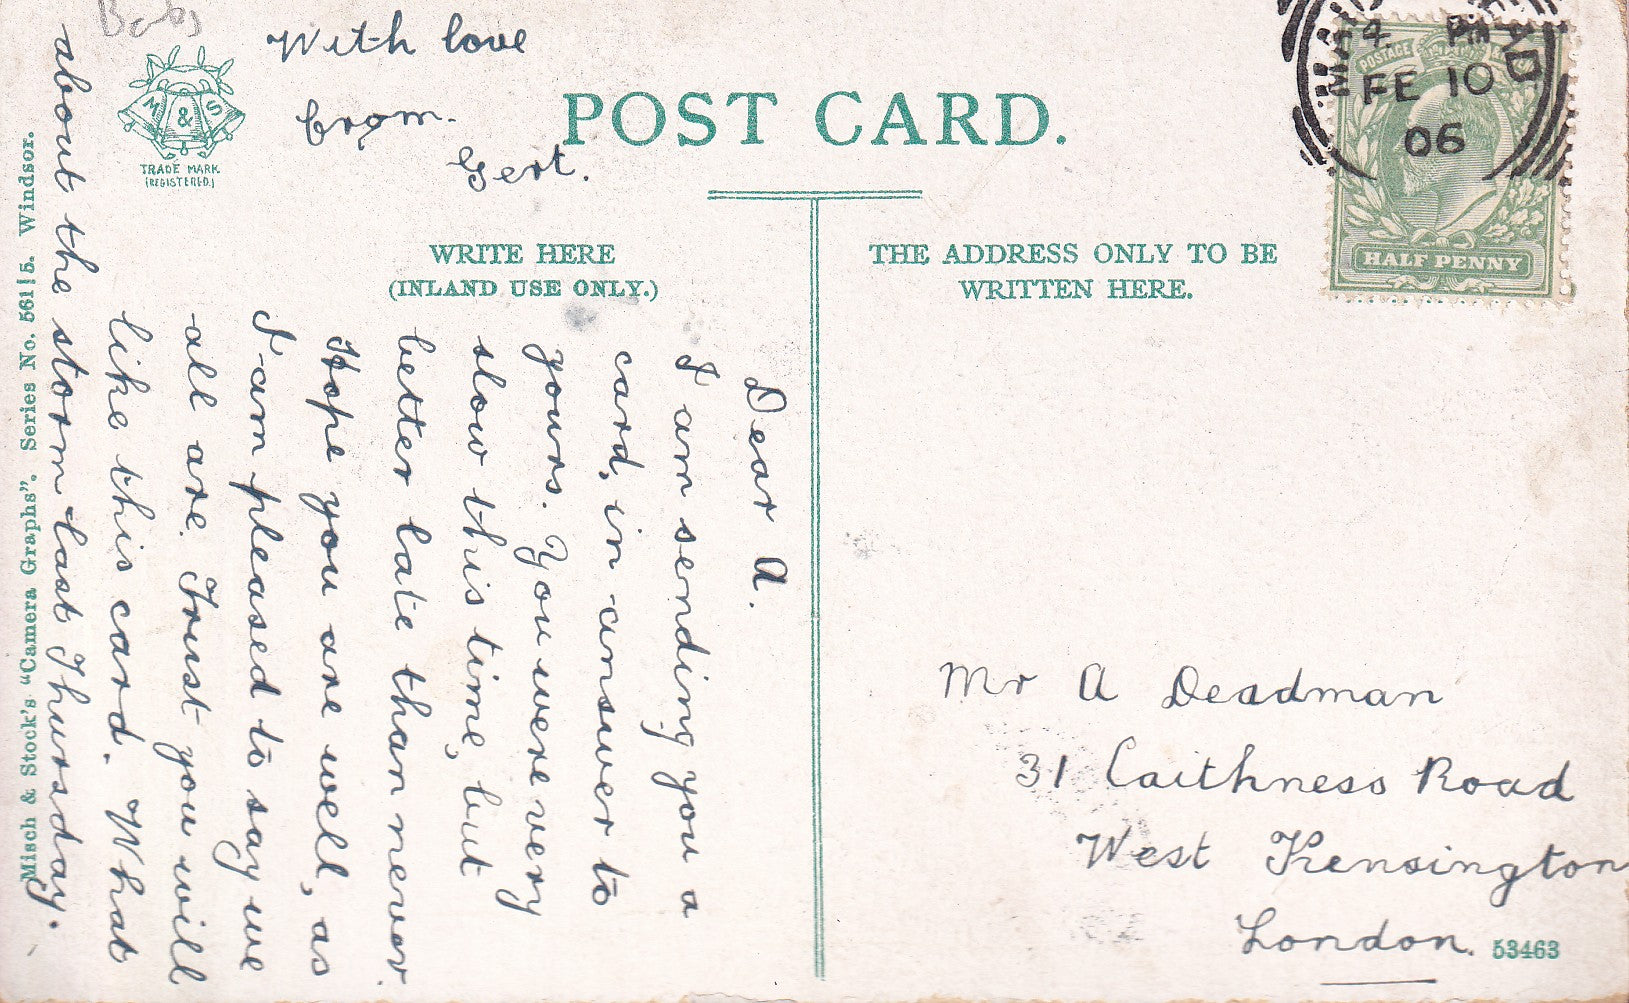 With love
from.
Gert.
M & S
TRADE MARK
(REGISTERED.)
POST CARD.
WRITE HERE
(INLAND USE ONLY.)
THE ADDRESS ONLY TO BE
WRITTEN HERE.
4 PM
FE 10
06
POSTAGE
HALF PENNY
Dear A.
I am sending you a
card, in answer to
yours. You were very
slow this time, but
better late than never.
Hope you are well, as
I am pleased to say we
all are. Trust you will
like this card. What
about the storm last Thursday.
Mr A Deadman
31 Caithness Road
West Kensington
London.
53463
Misch & Stock's "Camera Graphs". Series No. 561|5. Windsor.